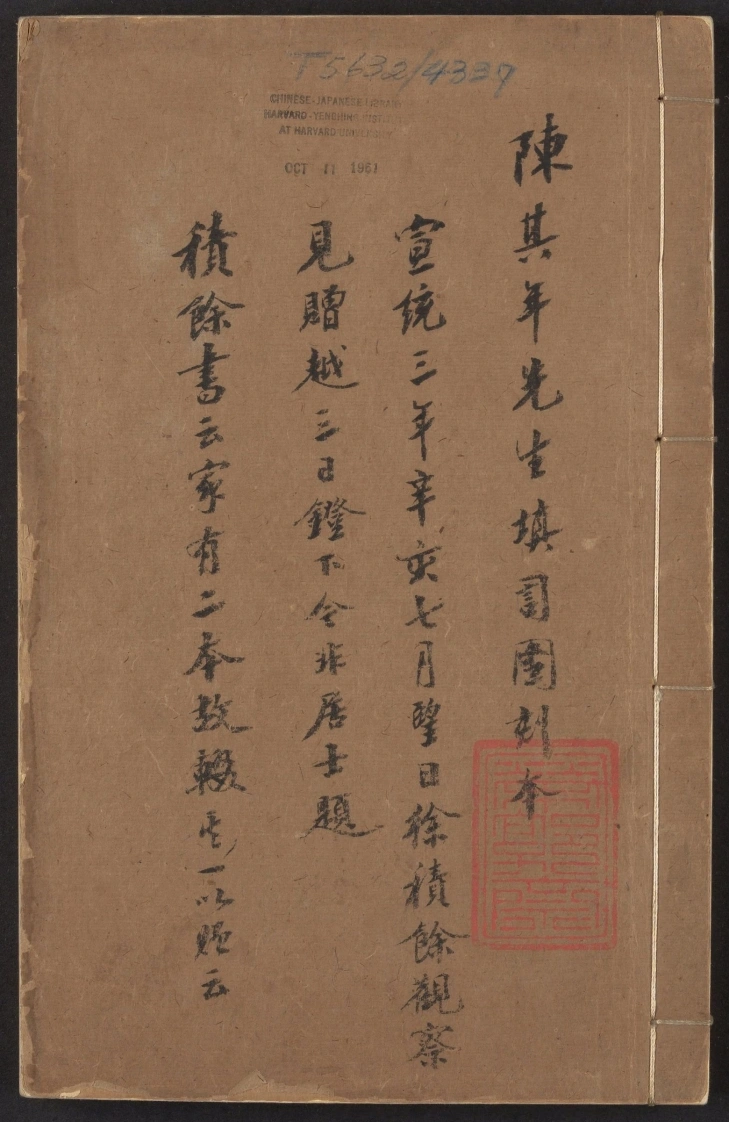 T5632/4337
CHINESE-JAPANESE LIBRARY
HARVARD-YENCHING INSTITUTE
AT HARVARD UNIVERSITY
OCT 11 1961
陳其年先生填詞圖刻本
宣統三年辛亥七月望日徐積餘觀察
見贈越三日鐙下令非居士題
積餘書云家有二本故輟其一以贈云